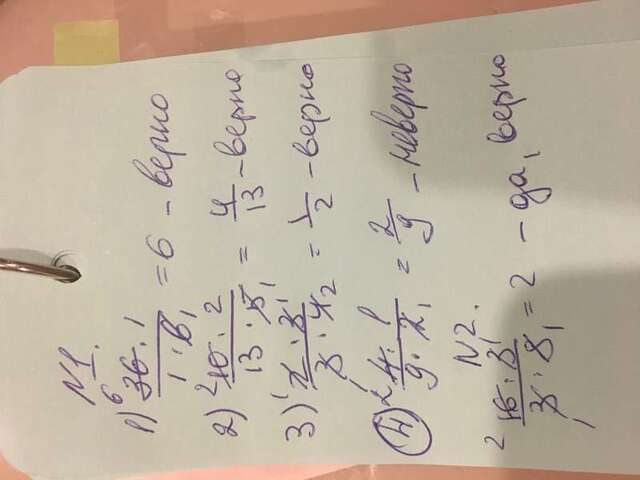 N1.
1) 6 36 · 1 / 1 · 6 1 = 6 - верно
2) 2 10 · 2 / 13 · 5 1 = 4/13 - верно
3) 1 2 · 3 1 / 1 3 · 4 2 = 1/2 - верно
4) 2 4 · 1 / 9 · 2 1 = 2/9 - неверно
N2.
2 16 · 3 1 / 1 3 · 8 1 = 2 - да, верно